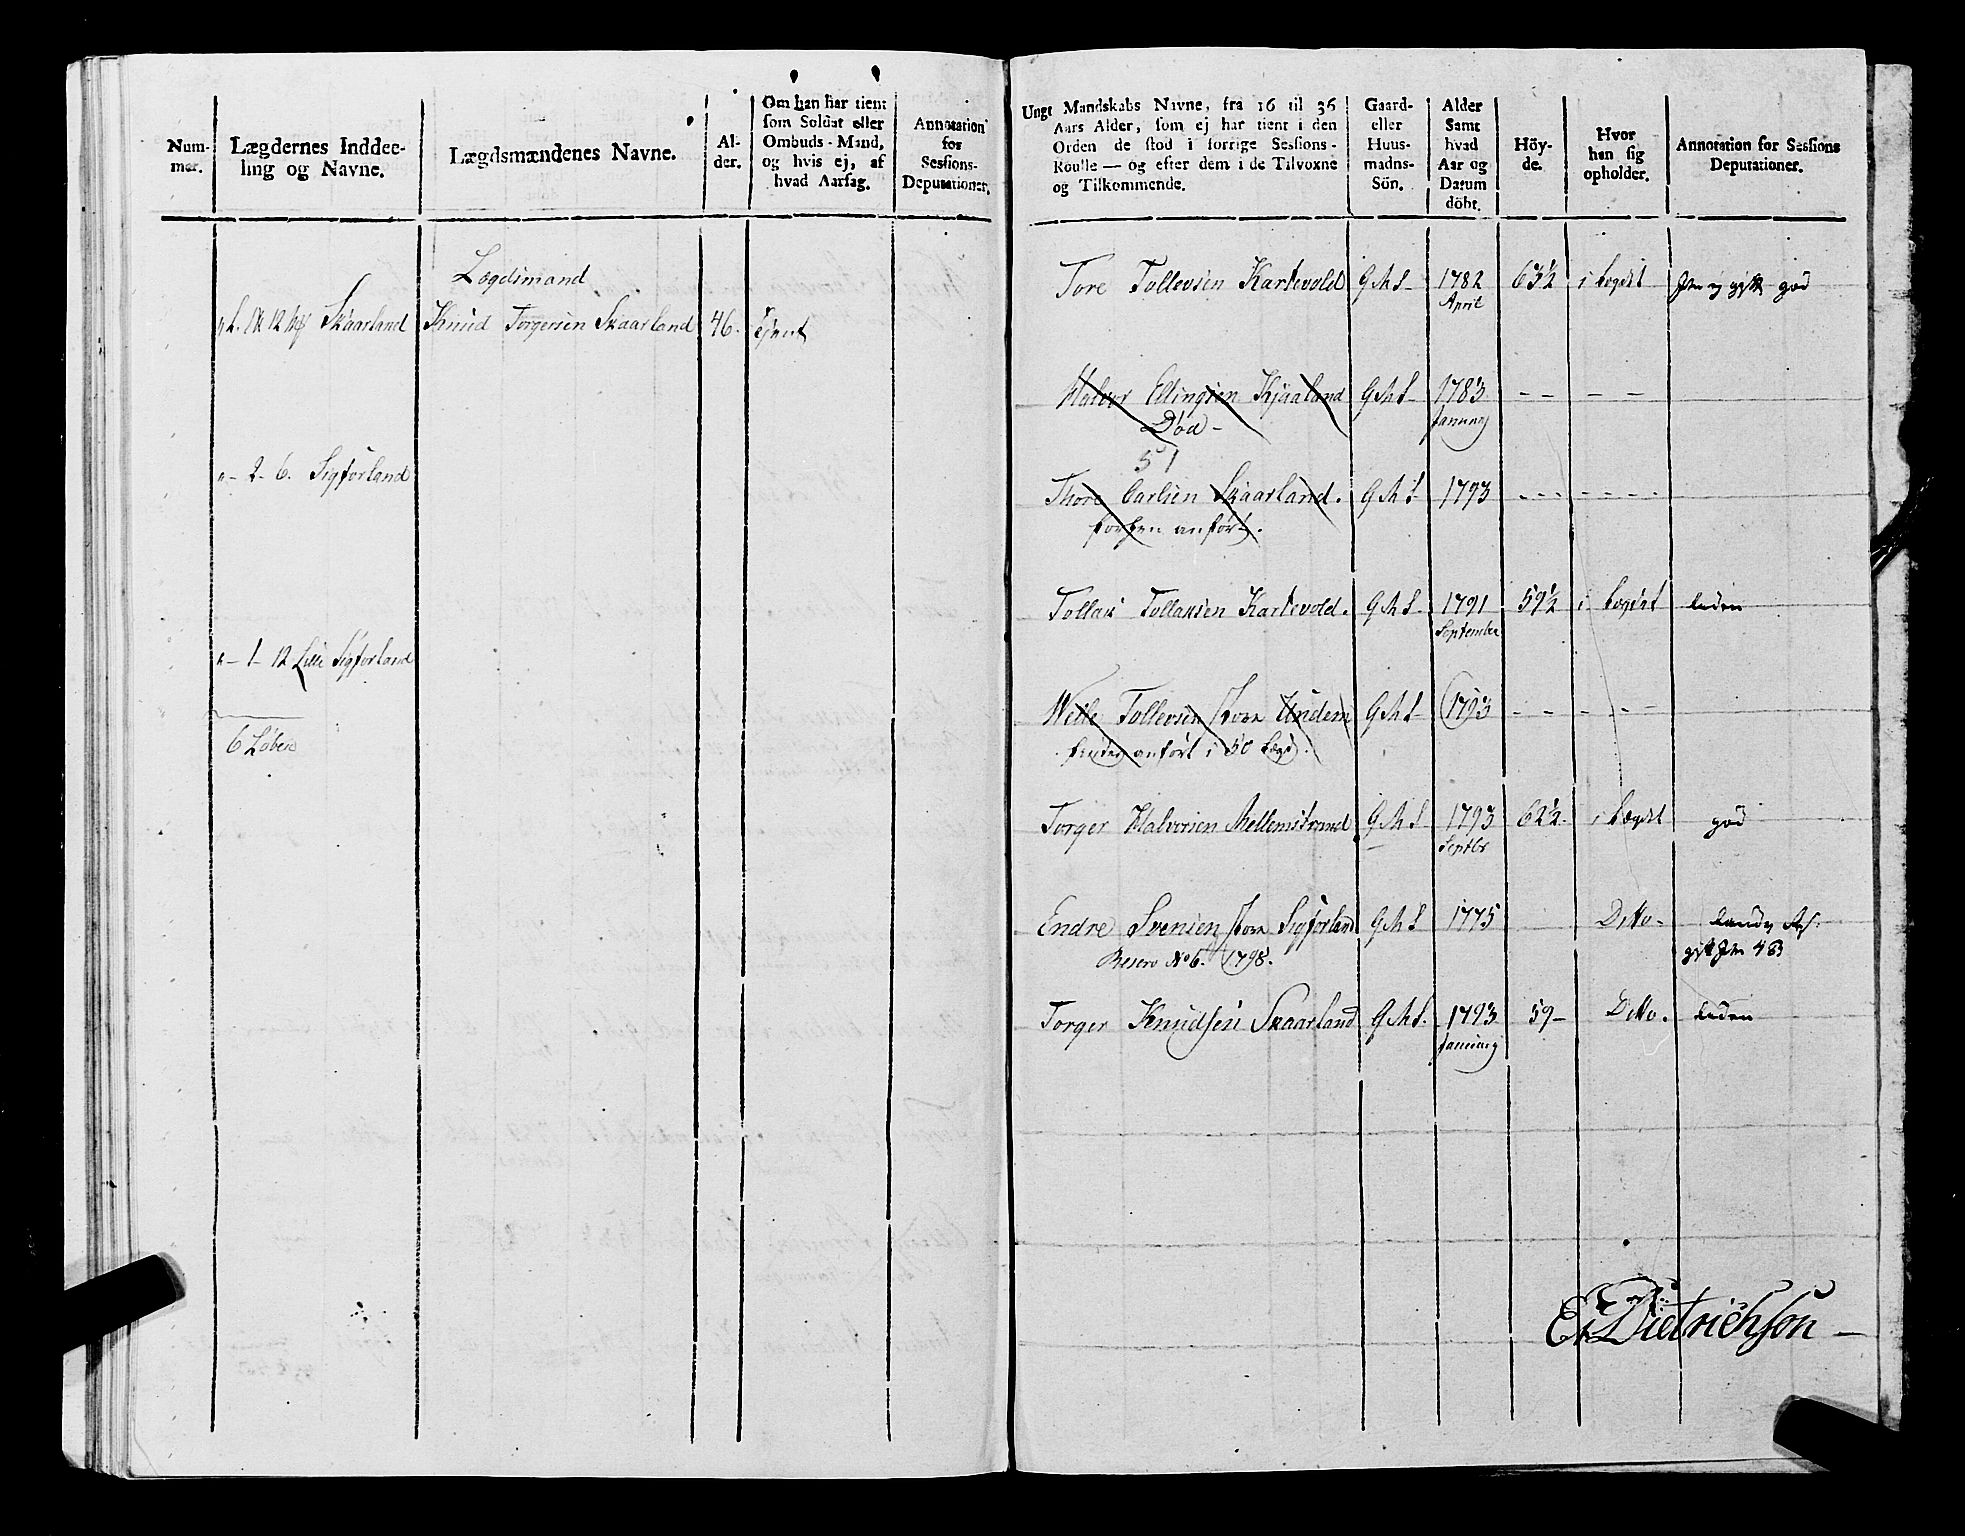 Num-
mer.
Lægdernes Inddee-
ling og Navne.
Lægdsmændenes Navne.
Al-
der.
Om han har tient
som Soldat eller
Ombuds-Mand,
og hvis ej, af
hvad Aarsag.
Annotation
for
Sessions-
Deputationer.
Lægdsmand
Skaarland Knud Torgersen Skaarland 46.
- 2 - 6. Sigforland
- 1 - 12 Lille Sigforland
6 Løber
Ungt Mandskabs Navne, fra 16 til 36
Aars Alder, som ej har tient i den
Orden de stod i forrige Sessions-
Roulle — og efter dem i de Tilvoxne
og Tilkommende.
Gaard-
eller
Huus-
mands-
Sön.
Alder
Samt
hvad
Aar og
Datum
döbt.
Höy-
de.
Hvor
han sig
opholder.
Annotation for Sessions
Deputationer.
Tore Tollevsen Kartevold G M S 1782 63½ i Lægdet god
April
Halvor Ellingsen Kjaaland G M S 1783 - - - -
Død - Januarj
51
Thore Carlsen Skaarland. G M S 1793 - - - - - -
forhen anført.
Tollak Tollaksen Kartevold. G M S 1791 59½ i Lægdet liden
September
Tollevsen store Undem G M S 1793 - - - - -
anført i 50 Lægd.
Torger Halvorsen Mellemstrand G M S 1793 62½ i Lægdet god
Septbr
Endre Svensen store Sigforland G M S 1775 Ditto -
Reserv No 6. 1798.
Torger Knudsen Skaarland G M S. 1793 59 - Ditto. liden
Januarj
E. Dietrichson